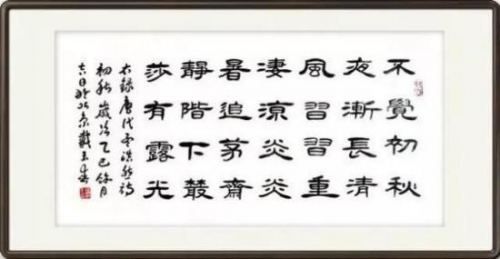 不覺初秋
夜漸長清
風習習重
淒涼炎炎
暑退茅齋
靜階下叢
莎有露光
右錄唐代孟浩然詩
初秋歲次乙巳 月
六日於北京戴玉